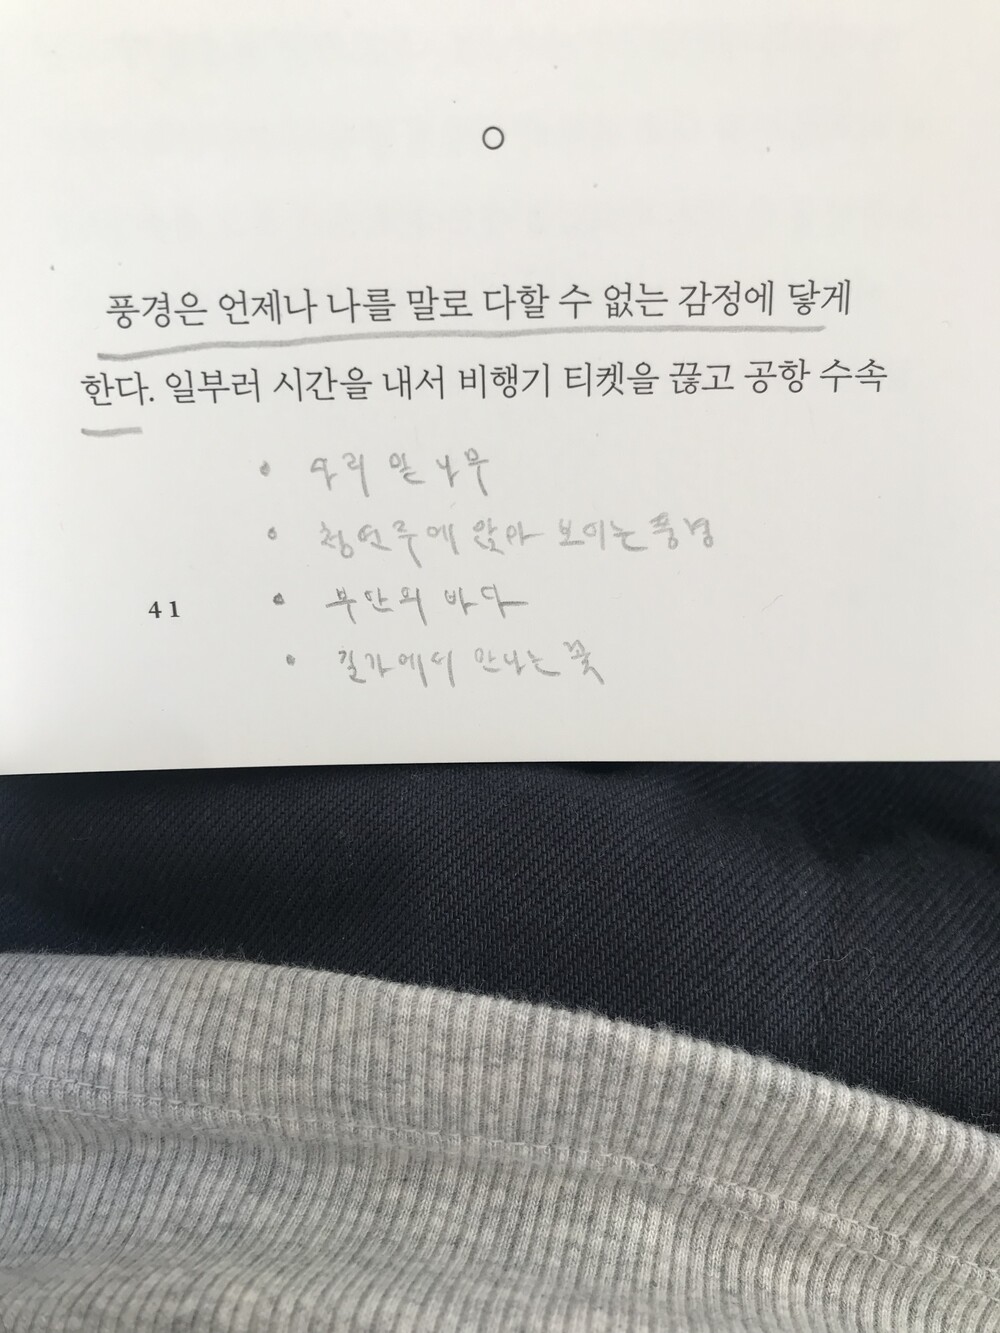 풍경은 언제나 나를 말로 다할 수 없는 감정에 닿게
한다. 일부러 시간을 내서 비행기 티켓을 끊고 공항 수속
나무
청연루에 앉아 보이는 풍경
부안의 바다
41
길가에서 만나는 꽃